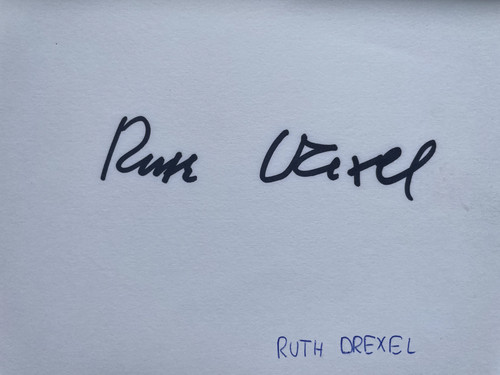 Ruth Drexel
RUTH DREXEL